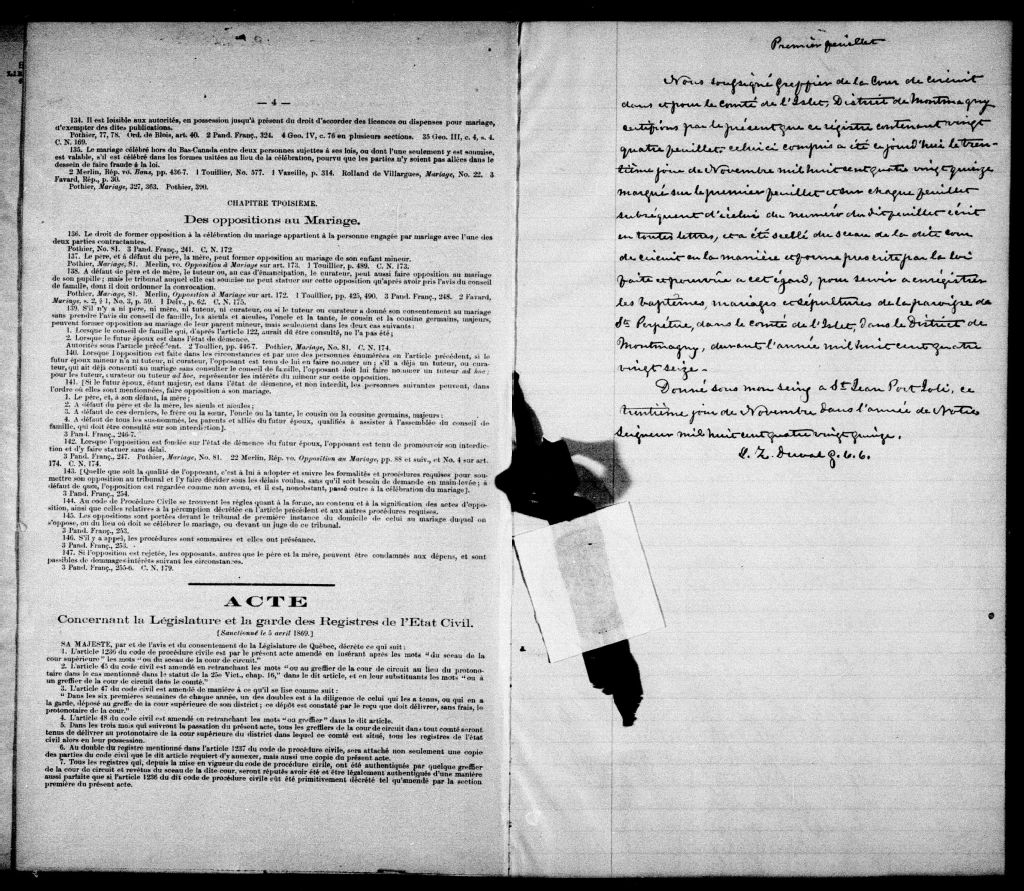 — 4 —
134. Il est loisible aux autorités, en possession jusqu'à présent du droit d'accorder des licences ou dispenses pour mariage,
d'exempter des dites publications.
Pothier, 77, 78. Ord. de Blois, art. 40. 2 Pand. Franç., 324. 4 Geo. IV, c. 76 en plusieurs sections. 35 Geo. III, c. 4, s. 4.
C. N. 169.
135. Le mariage célébré hors du Bas-Canada entre deux personnes sujettes à ses lois, ou dont l'une seulement y est soumise,
est valable, s'il est célébré dans les formes usitées au lieu de la célébration, pourvu que les parties n'y soient pas allées dans le
dessein de faire fraude à la loi.
2 Merlin, Rép. vo. Bans, pp. 436-7. 1 Touillier, No. 577. 1 Vazeille, p. 314. Rolland de Villargues, Mariage, No. 22. 3
Favard, Rép., p. 30.
Pothier, Mariage, 327, 363. Pothier, 390.
CHAPITRE TROISIÈME.
Des oppositions au Mariage.
136. Le droit de former opposition à la célébration du mariage appartient à la personne engagée par mariage avec l'une des
deux parties contractantes.
Pothier, No. 81. 3 Pand. Franç., 241. C. N. 172.
137. Le père, et à défaut du père, la mère, peut former opposition au mariage de son enfant mineur.
Pothier, Mariage, 81. Merlin, vo. Opposition à Mariage sur art. 173. 1 Touillier, p. 489. C. N. 173.
138. A défaut de père et de mère, le tuteur ou, au cas d'émancipation, le curateur, peut aussi faire opposition au mariage
de son pupille; mais le tribunal auquel elle est soumise ne peut statuer sur cette opposition qu'après avoir pris l'avis du conseil
de famille, dont il doit ordonner la convocation.
Pothier, Mariage, 81. Merlin, Opposition à Mariage sur art. 172. 1 Touillier, pp. 425, 490. 3 Pand. Franç., 248. 2 Favard,
Mariage, s. 2, § 1, No. 3, p. 59. 1 Delv., p. 62. C. N. 175.
139. S'il n'y a ni père, ni mère, ni tuteur, ni curateur, ou si le tuteur ou curateur a donné son consentement au mariage
sans prendre l'avis du conseil de famille, les aieuls et aieules, l'oncle et la tante, le cousin et la cousine germains, majeurs,
peuvent former opposition au mariage de leur parent mineur, mais seulement dans les deux cas suivants:
1. Lorsque le conseil de famille qui, d'après l'article 122, aurait dû être consulté, ne l'a pas été;
2. Lorsque le futur époux est dans l'état de démence.
Autorités sous l'article précédent. 2 Touillier, pp. 446-7. Pothier, Mariage, No. 81. C. N. 174.
140. Lorsque l'opposition est faite dans les circonstances et par une des personnes énumérées en l'article précédent, si le
futur époux mineur n'a ni tuteur, ni curateur, l'opposant est tenu de lui en faire nommer un; s'il a déjà un tuteur, ou cura-
teur, qui ait déjà consenti au mariage sans consulter le conseil de famille, l'opposant doit lui faire nommer un tuteur ad hoc;
pour les tuteur, curateur ou tuteur ad hoc, représenter les intérêts du mineur sur cette opposition.
141. [Si le futur époux, étant majeur, est dans l'état de démence, et non interdit, les personnes suivantes peuvent, dans
l'ordre où elles sont mentionnées, faire opposition à son mariage.
1. Le père, et, à son défaut, la mère;
2. A défaut du père et de la mère, les aieuls et aieules;
3. A défaut de ces derniers, le frère ou la sœur, l'oncle ou la tante, le cousin ou la cousine germains, majeurs:
4. A défaut de tous les sus-nommés, les parents et alliés du futur époux, qualifiés à assister à l'assemblée du conseil de
famille, qui doit être consulté sur son interdiction].
3 Pand. Franç., 246-7.
142. Lorsque l'opposition est fondée sur l'état de démence du futur époux, l'opposant est tenu de promouvoir son interdic-
tion et d'y faire statuer sans délai.
3 Pand. Franç., 247. Pothier, Mariage, No. 81. 22 Merlin, Rép. vo. Opposition au Mariage, pp. 88 et suiv., et No. 4 sur art.
174. C. N. 174.
143. [Quelle que soit la qualité de l'opposant, c'est à lui à adopter et suivre les formalités et procédures requises pour sou-
mettre son opposition au tribunal et l'y faire décider sous les délais voulus, sans qu'il soit besoin de demande en main-levée; à
défaut de quoi, l'opposition est regardée comme non avenue, et il est, nonobstant, passé outre à la célébration du mariage].
3 Pand. Franç., 254.
144. Au code de Procédure Civile se trouvent les règles quant à la forme, au contenu et à la signification des actes d'oppo-
sition, ainsi que celles relatives à la péremption décrétée en l'article précédent et aux autres procédures requises.
145. Les oppositions sont portées devant le tribunal de première instance du domicile de celui au mariage duquel on
s'oppose, ou du lieu où doit se célébrer le mariage, ou devant un juge de ce tribunal.
3 Pand. Franç., 253.
146. S'il y a appel, les procédures sont sommaires et elles ont préséance.
3 Pand. Franç., 253.
147. Si l'opposition est rejetée, les opposants, autres que le père et la mère, peuvent être condamnés aux dépens, et sont
passibles de dommages-intérêts suivant les circonstances.
3 Pand. Franç., 255-6. C. N. 179.
ACTE
Concernant la Législature et la garde des Registres de l'Etat Civil.
[Sanctionné le 5 avril 1869.]
SA MAJESTE, par et de l'avis et du consentement de la Législature de Québec, décrète ce qui suit:
1. L'article 1236 du code de procédure civile est par le présent acte amendé en insérant après les mots "du sceau de la
cour supérieure" les mots "ou du sceau de la cour de circuit."
2. L'article 45 du code civil est amendé en retranchant les mots "ou au greffier de la cour de circuit au lieu du protono-
taire dans le cas mentionné dans le statut de la 25e Vict., chap. 16," dans le dit article, et en leur substituants les mots "ou à
un greffier de la cour de circuit dans le comté."
3. L'article 47 du code civil est amendé de manière à ce qu'il se lise comme suit:
"Dans les six premières semaines de chaque année, un des doubles est à la diligence de celui qui les a tenus, ou qui en a
la garde, déposé au greffe de la cour supérieure de son district; ce dépôt est constaté par le reçu que doit délivrer, sans frais, le
protonotaire de la cour."
4. L'article 48 du code civil est amendé en retranchant les mots "ou greffier" dans le dit article.
5. Dans les trois mois qui suivront la passation du présent acte, tous les greffiers de la cour de circuit dans tout comté seront
tenus de délivrer au protonotaire de la cour supérieure du district dans lequel ce comté est situé, tous les registres de l'état
civil alors en leur possession.
6. Au double du registre mentionné dans l'article 1237 du code de procédure civile, sera attaché non seulement une copie
des parties du code civil que le dit article requiert d'y annexer, mais aussi une copie du présent acte.
7. Tous les registres qui, depuis la mise en vigueur du code de procédure civile, ont été authentiqués par quelque greffier
de la cour de circuit et revêtus du sceau de la dite cour, seront réputés avoir été et être légalement authentiqués d'une manière
aussi parfaite que si l'article 1236 du dit code de procédure civile eût été primitivement décrété tel qu'amendé par la section
première du présent acte.
Premier feuillet
Nous soussigné Greffier de la Cour de circuit
dans et pour le comté de l'Islet, District de Montmagny
certifions par le présent que ce régistre contenant vingt
quatre feuillets celui ci compris a été ce jourd'hui le tren-
tième jour de Novembre mil huit cent quatre vingt quinze
marqué sur le premier feuillet et sur chaque feuillet
subséquent d'icelui du numéro du dit feuillet écrit
en toutes lettres, et a été scellé du sceau de la dite cour
de circuit en la manière et forme prescrite par la loi
faite et pourvue a cet égard, pour servir a enregistrer
les baptêmes, mariages et sépultures de la paroisse de
Ste Perpétue, dans le comté de l'Islet, dans le District de
Montmagny, durant l'année mil huit cent quatre
vingt seize.
Donné sous mon seing a St Jean Port Joli, ce
trentième jour de Novembre dans l'année de Notre
Seigneur mil huit cent quatre vingt quinze.
L. Z. Duval g. c. c.